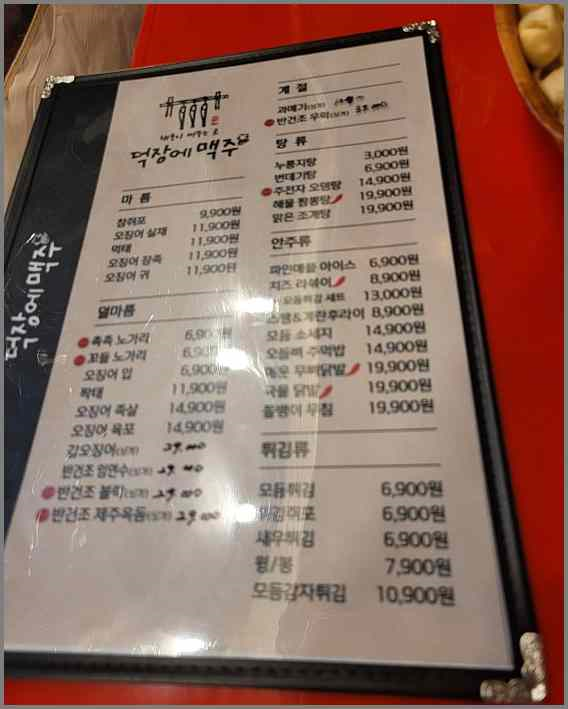 덕장에 맥주
덕장에 맥주
마 름
참쥐포 9,900원
오징어 실채 11,900원
먹태 11,900원
오징어 장족 11,900원
오징어 귀 11,900원
덜마름
촉촉 노가리 6,900원
꼬들 노가리 6,900원
오징어 입 6,900원
짝태 11,900원
오징어 족살 14,900원
오징어 육포 14,900원
갑오징어(싯가) 29,000
반건조 임연수(싯가)
반건조 볼락(싯가) 29,000
반건조 제주옥돔(싯가) 29,000
계 절
과메기(싯가)
반건조 우럭(싯가)
탕 류
누룽지탕 3,000원
번데기탕 6,900원
주전자 오뎅탕 14,900원
해물 짬뽕탕 19,900원
맑은 조개탕 19,900원
안주류
파인애플 아이스 6,900원
치즈 라쉐이 8,900원
모듬튀김 세트 13,000원
스팸&계란후라이 8,900원
모듬 소세지 14,900원
오돌뼈 주먹밥 14,900원
매운 무뼈닭발 19,900원
국물 닭발 19,900원
골뱅이 무침 19,900원
튀김류
모듬튀김 6,900원
튀김쥐포 6,900원
새우튀김 6,900원
윙/봉 7,900원
모듬감자튀김 10,900원